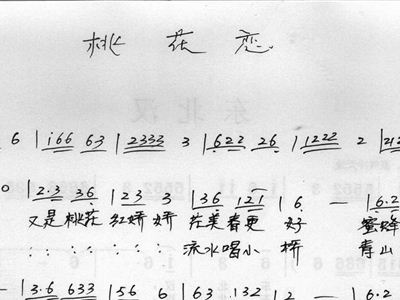 桃花恋
6 | i66 63 | 2333 3 | 622 26 | 1222 2 | 212
0 | 2·3 36 | 23 3 | 36 121 | 6 — | 6·2
又是桃花 红娇娇 花美春更好 蜜蜂
流水唱小桥 青山
— | 3·6 633 | 56 6 | 63 132 | 2 — | 6·2